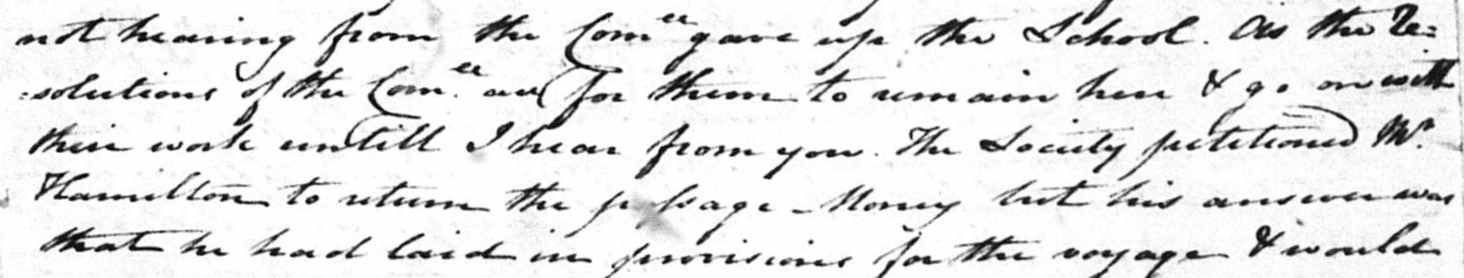 not hearing from the Comee gave up the School. As the Re=
=solutions of the Comee are for them to remain here & go on with
their work untill I hear from you. The Society petitioned Mr.
Hamilton to return the passage-Money but his answer was
that he had laid in provisions for the voyage & would